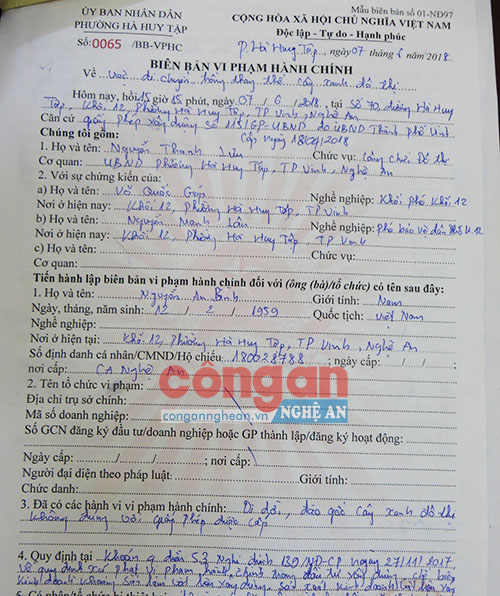 Mẫu biên bản số 01-NĐ97
ỦY BAN NHÂN DÂN
PHƯỜNG HÀ HUY TẬP
Số: 0065 /BB-VPHC
CỘNG HÒA XÃ HỘI CHỦ NGHĨA VIỆT NAM
Độc lập - Tự do - Hạnh phúc
P. Hà Huy Tập, ngày 07 tháng 6 năm 2018
BIÊN BẢN VI PHẠM HÀNH CHÍNH
Về việc di chuyển, trồng thay thế cây xanh đô thị
Hôm nay, hồi 15 giờ 15 phút, ngày 07 / 6 / 2018, tại Số 70, đường Hà Huy
Tập, Khối 12, Phường Hà Huy Tập, TP Vinh, Nghệ An
Căn cứ giấy phép xây dựng số 115/GP-UBND do UBND Thành phố Vinh
cấp ngày 2018
Chúng tôi gồm:
1. Họ và tên: Nguyễn Thanh Chức vụ: Công chức
Cơ quan: UBND Phường Hà Huy Tập, TP Vinh, Nghệ An
2. Với sự chứng kiến của:
a) Họ và tên: Võ Quốc Nghề nghiệp: Khối phó Khối 12
Nơi ở hiện nay: Khối 12, Phường Hà Huy Tập, TP Vinh
b) Họ và tên: Nguyễn Mạnh Nghề nghiệp: phó bảo vệ dân phố K.12
Nơi ở hiện nay: Khối 12, Phường Hà Huy Tập, TP Vinh
c) Họ và tên: Chức vụ:
Cơ quan:
Tiến hành lập biên bản vi phạm hành chính đối với (ông (bà)/tổ chức) có tên sau đây:
1. Họ và tên: Nguyễn An Bình Giới tính: Nam
Ngày, tháng, năm sinh: 12 / 2 / 1959 Quốc tịch: Việt Nam
Nghề nghiệp:
Nơi ở hiện tại: Khối 12, Phường Hà Huy Tập, TP Vinh, Nghệ An
Số định danh cá nhân/CMND/Hộ chiếu: 180028788; ngày cấp: / / ;
nơi cấp: CA Nghệ An
côngan
congannghean.vn
NGHỆ AN
2. Tên tổ chức vi phạm:
Địa chỉ trụ sở chính:
Mã số doanh nghiệp:
Số GCN đăng ký đầu tư/doanh nghiệp hoặc GP thành lập/đăng ký hoạt động:
Ngày cấp: / / ; nơi cấp:
Người đại diện theo pháp luật: Giới tính:
Chức danh:
3. Đã có các hành vi vi phạm hành chính: Di dời, đào gốc cây xanh đô thị
không đúng với giấy phép được cấp
4. Quy định tại Khoản 4 điều 53 Nghị định 139/NĐ-CP ngày 27/11/2017
Về quy định xử phạt vi phạm hành chính trong đầu tư xây dựng